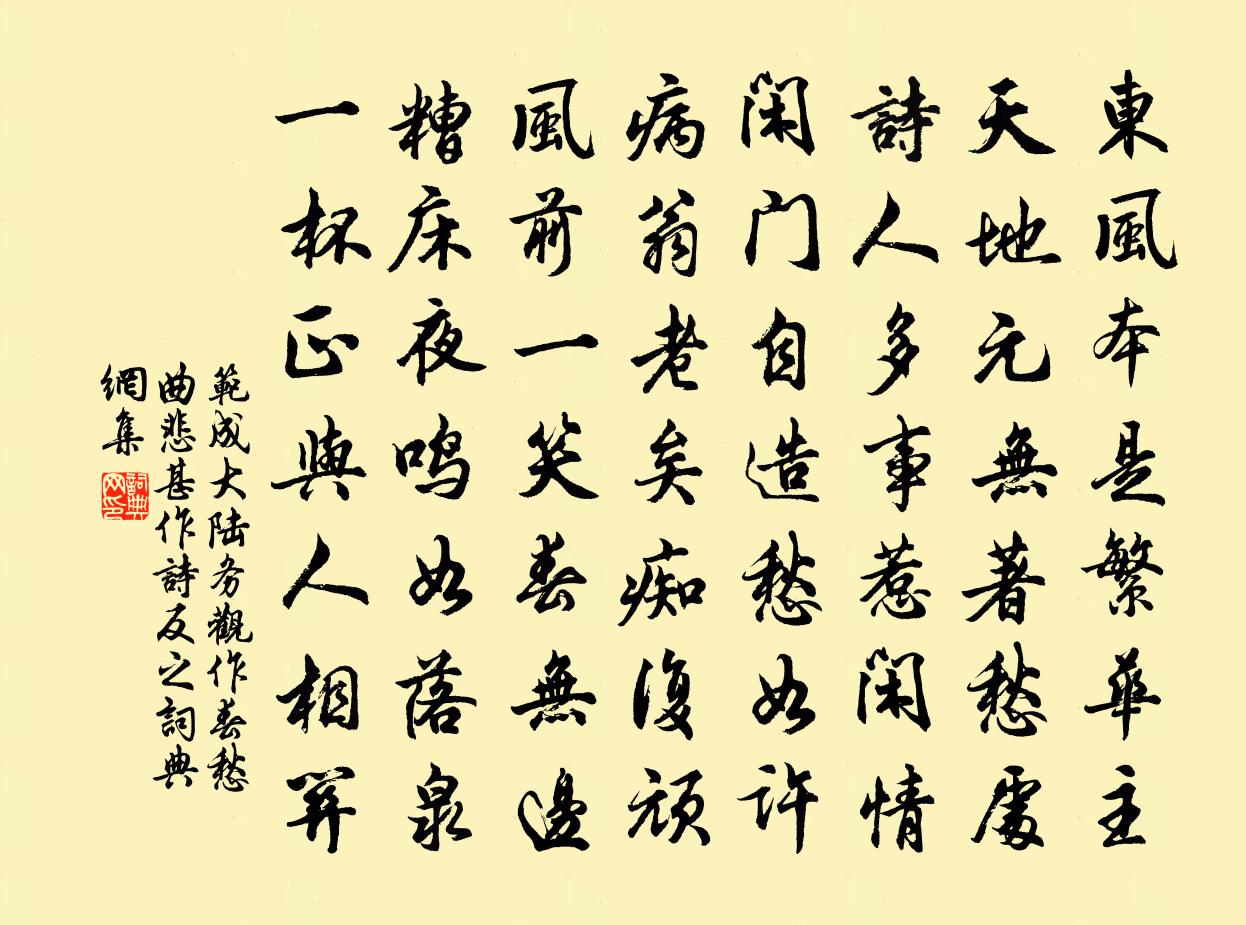 東風本是繁華主
天地元無著愁處
詩人多事惹閑情
閑門自造愁如許
病翁老矣痴復頑
風前一笑春無邊
糟床夜鳴如落泉
一杯正與人相關
範成大陸務觀作春愁
曲悲甚作詩反之詞典
網集
詞典网印